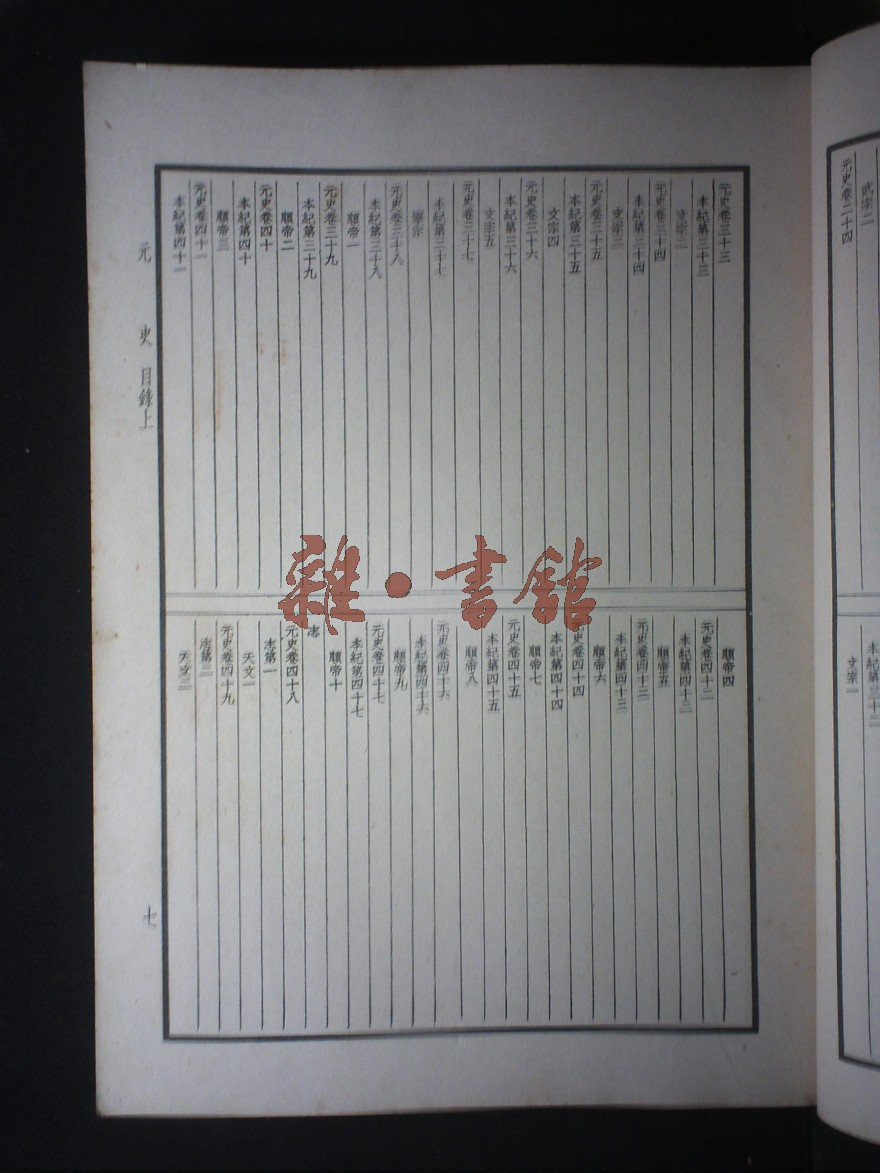 武宗二
元史卷二十四
本紀第三十二
文宗一
元史卷三十三
本紀第三十三
文宗二
元史卷三十四
本紀第三十四
文宗三
元史卷三十五
本紀第三十五
文宗四
元史卷三十六
本紀第三十六
文宗五
元史卷三十七
本紀第三十七
寧宗
元史卷三十八
本紀第三十八
順帝一
元史卷三十九
本紀第三十九
順帝二
元史卷四十
本紀第四十
順帝三
元史卷四十一
本紀第四十一
順帝四
元史卷四十二
本紀第四十二
順帝五
元史卷四十三
本紀第四十三
順帝六
元史卷四十四
本紀第四十四
順帝七
元史卷四十五
本紀第四十五
順帝八
元史卷四十六
本紀第四十六
順帝九
元史卷四十七
本紀第四十七
順帝十
志
元史卷四十八
志第一
天文一
元史卷四十九
志第二
天文二
元史 目錄上
七
雜·書館